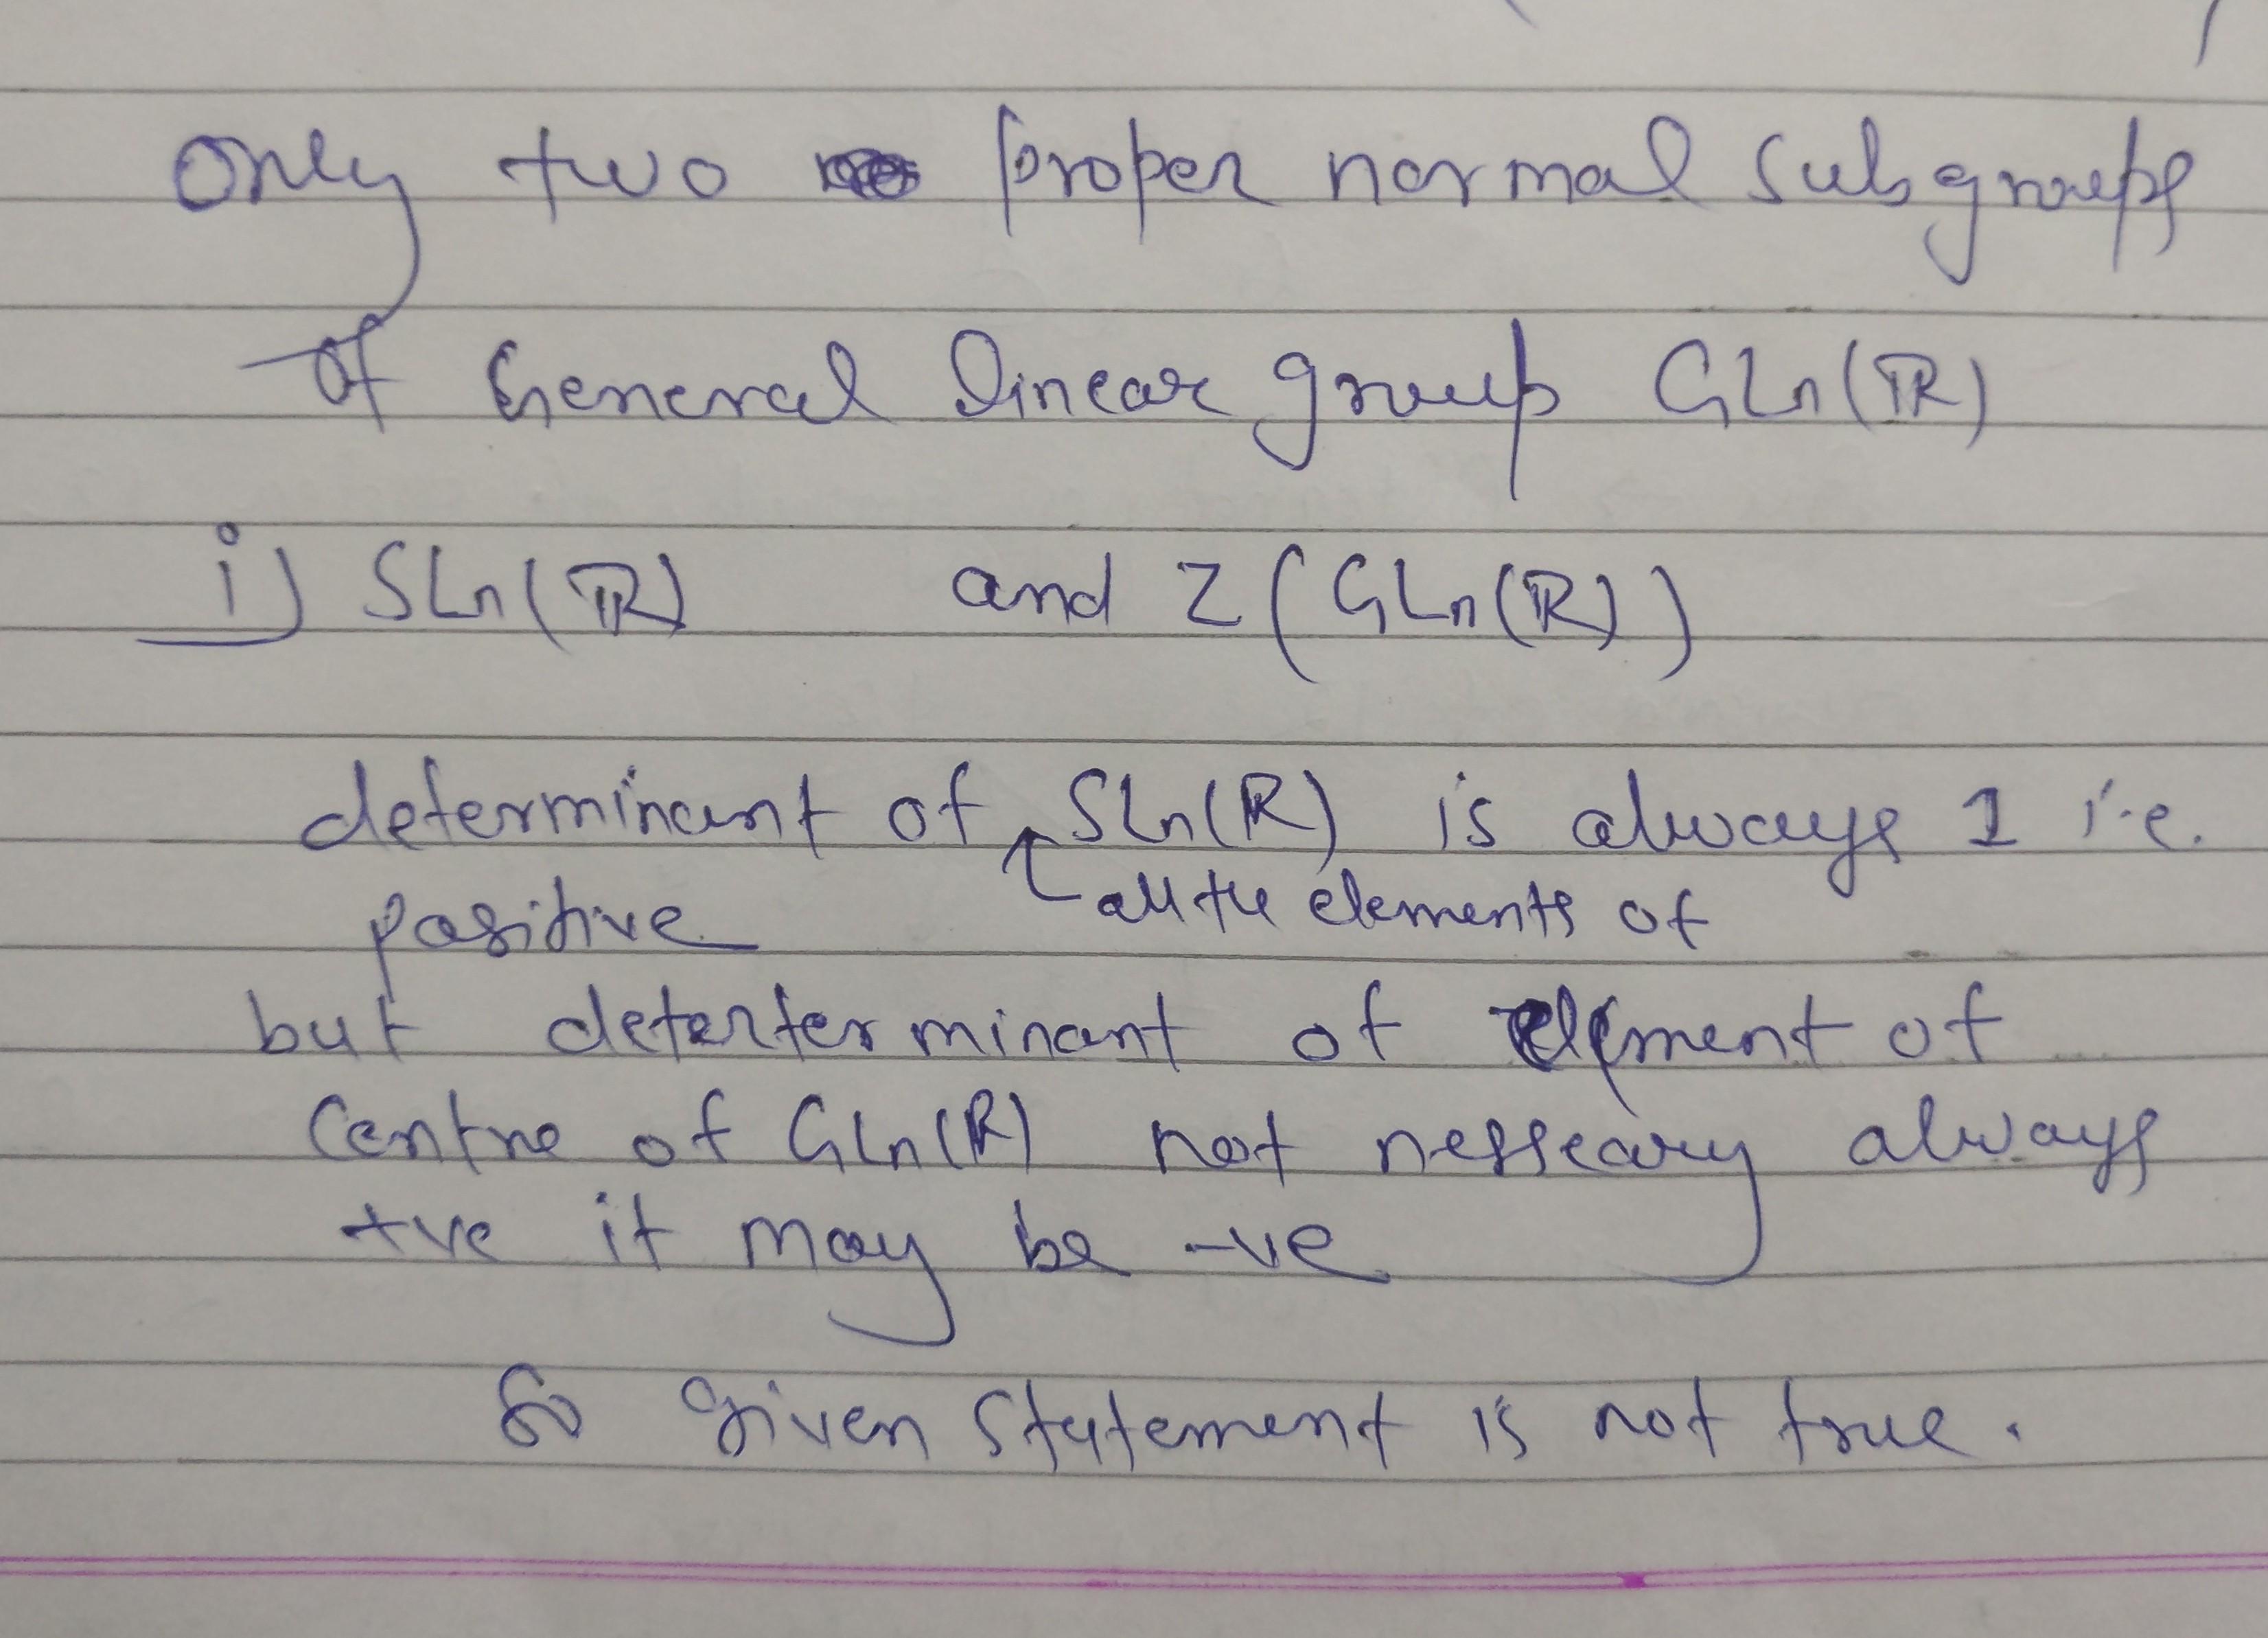 only two proper normal subgroups
of General linear group GLn(ℝ)
i) SLn(ℝ) and Z(GLn(ℝ))
determinant of SLn(ℝ) is always 1 i.e.
all the elements of
positive
but deterterminant of element of
Centre of GLn(ℝ) not nesseary always
+ve it may be -ve
So given statement is not true.